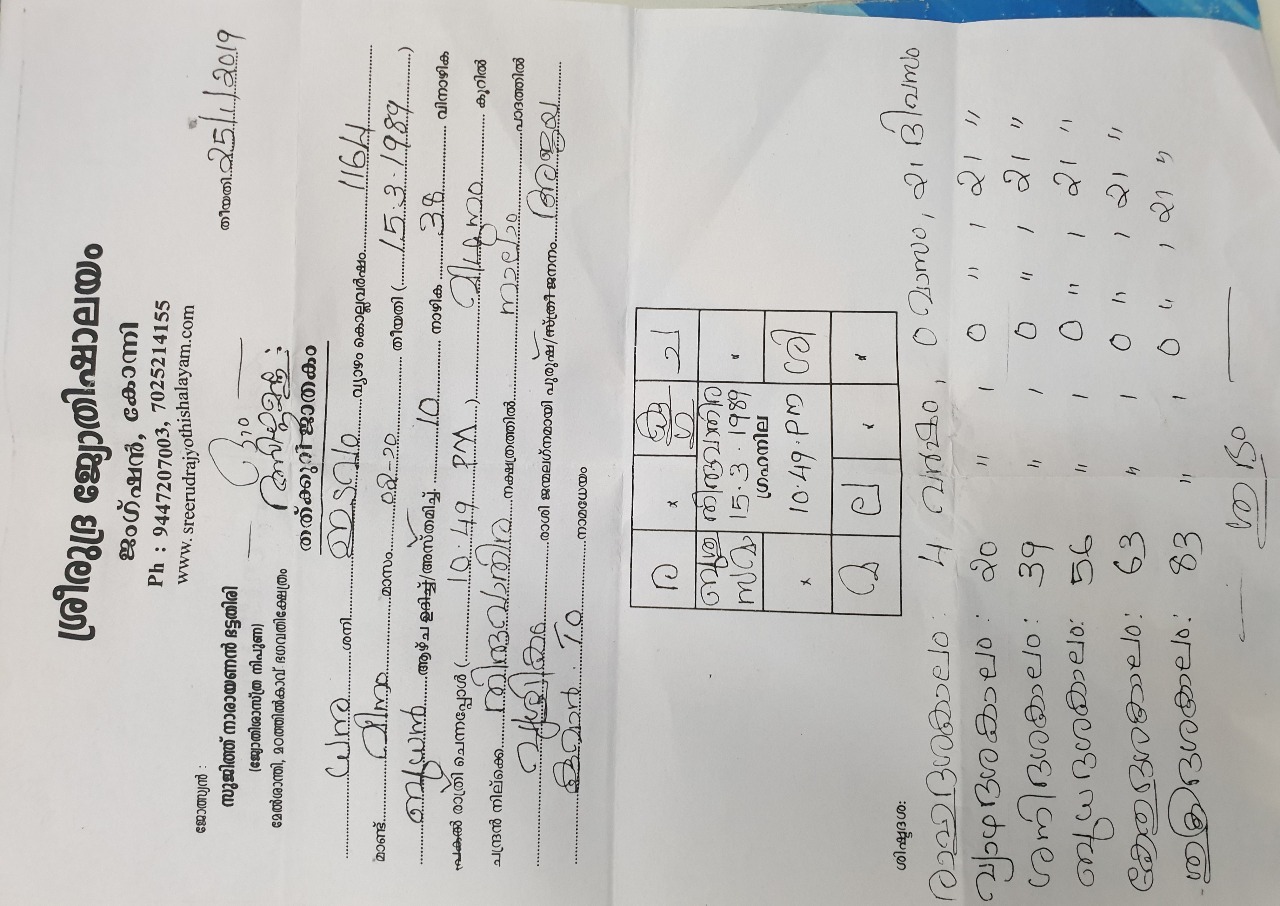 ശ്രീരുദ്ര ജ്യോതിഷാലയം
ജംഗ്ഷൻ, കോന്നി
Ph : 9447207003, 7025214155
www. sreerudrajyothishalayam.com
ജ്യോത്സ്യൻ :
സുജിത്ത് നാരായണൻ ഭട്ടതിരി
(ജ്യോതിശാസ്ത്ര നിപുണ)
മേൽശാന്തി, മഠത്തിൽകാവ് ഭഗവതിക്ഷേത്രം
തീയതി 25/1/2019
തത്ക്കുറി ജാതകം
ശനി ഇടവം വ്യാഴം കൊല്ലവർഷം 1164
മാണ്ട് മീനം മാസം 02-ാം തീയതി ( 15.3.1989 )
ബുധൻ ആഴ്ച ഉദിച്ച്/അസ്തമിച്ച് 10 നാഴിക 38 വിനാഴിക
പകൽ രാത്രി ചെന്നപ്പോൾ ( 10.49 PM ) മിഥുനം കൂറിൽ
ചന്ദ്രൻ നില്ക്കെ തിരുവാതിര നക്ഷത്രത്തിൽ നാലാം പാദത്തിൽ
വൃശ്ചികം രാശി ജന്മലഗ്നമായി പുരുഷ/സ്ത്രീ ജനനം
നാമധേയം
ര x ച
തിരുവാതിര
15.3.1989
ഗ്രഹനില
10.49.PM
x ശി
മ ല x x
ശിഷ്ടദശ:
രാഹുദശാകാലം : 4 വർഷം, 0 മാസം, 21 ദിവസം
വ്യാഴദശാകാലം : 20 " , 0 " , 21 "
ശനിദശാകാലം : 39 " , 0 " , 21 "
ബുധദശാകാലം : 56 " , 0 " , 21 "
കേതുദശാകാലം : 63 " , 0 " , 21 "
ശുക്രദശാകാലം : 83 " , 0 " , 21 "
ശുഭം